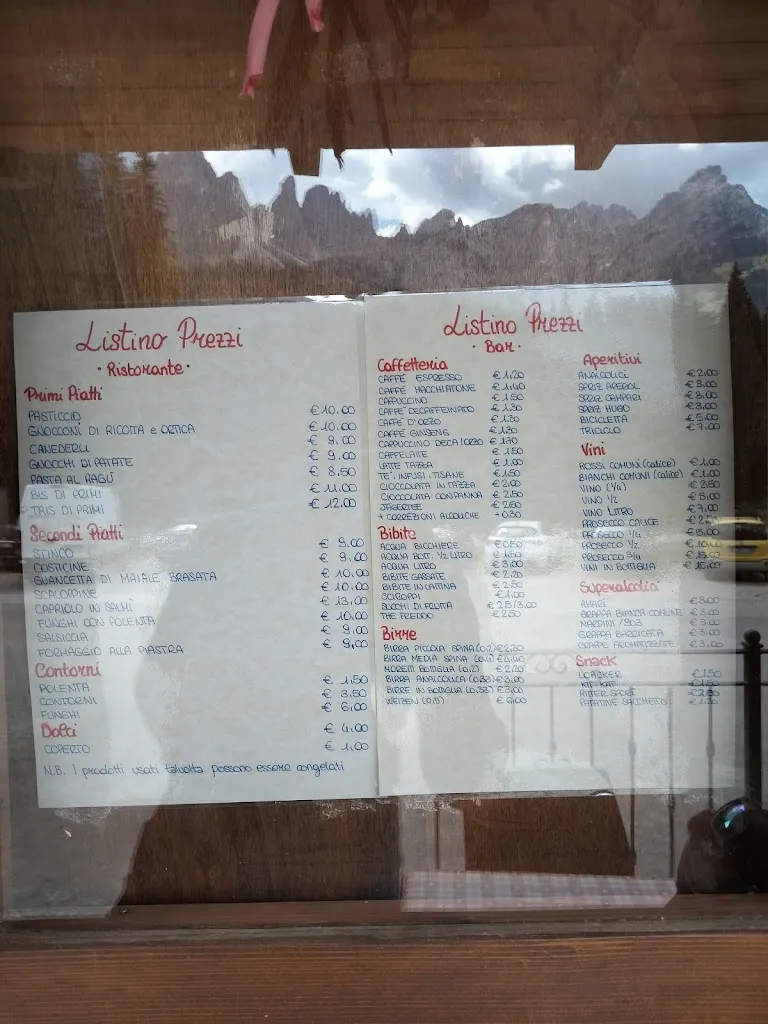 Listino Prezzi
· Ristorante ·
Primi Piatti
PASTICCIO € 10,00
GNOCCONI DI RICOTTA e ORTICA € 10,00
CANEDERLI € 9,00
GNOCCHI DI PATATE € 9,00
PASTA AL RAGÙ € 8,50
BIS DI PRIMI € 11,00
TRIS DI PRIMI € 12,00
Secondi Piatti
STINCO € 9,00
COSTICINE € 9,00
GUANCETTA DI MAIALE BRASATA € 10,00
SCALOPPINE € 10,00
CAPRIOLO IN SALMÌ € 13,00
FUNGHI CON POLENTA € 10,00
SALSICCIA € 9,00
FORMAGGIO ALLA PIASTRA € 9,00
Contorni
POLENTA € 1,50
CONTORNI € 3,50
FUNGHI € 6,00
Dolci € 4,00
COPERTO € 1,00
N.B. I prodotti usati talvolta possono essere congelati
Listino Prezzi
· Bar ·
Caffetteria
CAFFÈ ESPRESSO € 1,20
CAFFÈ MACCHIATONE € 1,40
CAPPUCCINO € 1,50
CAFFÈ DECAFFEINATO € 1,30
CAFFÈ D'ORZO € 1,30
CAFFÈ GINSENG € 1,30
CAPPUCCINO DECA/ORZO € 1,70
CAFFELATTE € 1,50
LATTE TAZZA € 1,00
TE', INFUSI, TISANE € 1,50
CIOCCOLATA IN TAZZA € 2,00
CIOCCOLATA CON PANNA € 2,50
JÄGERTEE € 2,50
+ CORREZIONI ALCOLICHE + 0,30
Bibite
ACQUA BICCHIERE € 0,50
ACQUA BOTT. 1/2 LITRO € 1,50
ACQUA LITRO € 3,00
BIBITE GASSATE € 2,20
BIBITE IN LATTINA € 2,50
SCIROPPI € 1,00
SUCCHI DI FRUTTA € 2,5/3,00
THE FREDDO € 2,50
Birre
BIRRA PICCOLA SPINA (0,2) € 2,20
BIRRA MEDIA SPINA (0,4) € 4,40
MORETTI BOTTIGLIA € 2,20
BIRRA ANALCOLICA (0,33) € 3,00
BIRRE IN BOTTIGLIA (0,33) € 3,00
WEIZEN (0,5)
Aperitivi
ANALCOLICI € 2,00
SPRIZ APEROL € 3,00
SPRIZ CAMPARI € 3,00
SPRIZ HUGO € 3,00
BICICLETTA € 5,00
TRICICLO € 7,00
Vini
ROSSI COMUNI (calice) € 1,00
BIANCHI COMUNI (calice) € 1,00
VINO (1/4) € 2,50
VINO 1/2 € 5,00
VINO LITRO € 7,00
PROSECCO CALICE
PROSECCO 1/4 € 5,00
PROSECCO 1/2
PROSECCO 3/4
VINI IN BOTTIGLIA € 15,00
Superalcolici
AMARI € 3,00
GRAPPA BIANCA COMUNE € 3,00
NARDINI / 903 € 3,00
GRAPPA BARRICATA € 3,00
GRAPPE AROMATIZZATE € 3,00
Snack
LOACKER € 1,50
KIT-KAT € 1,50
RITTER SPORT
PATATINE SACCHETTO € 1,20